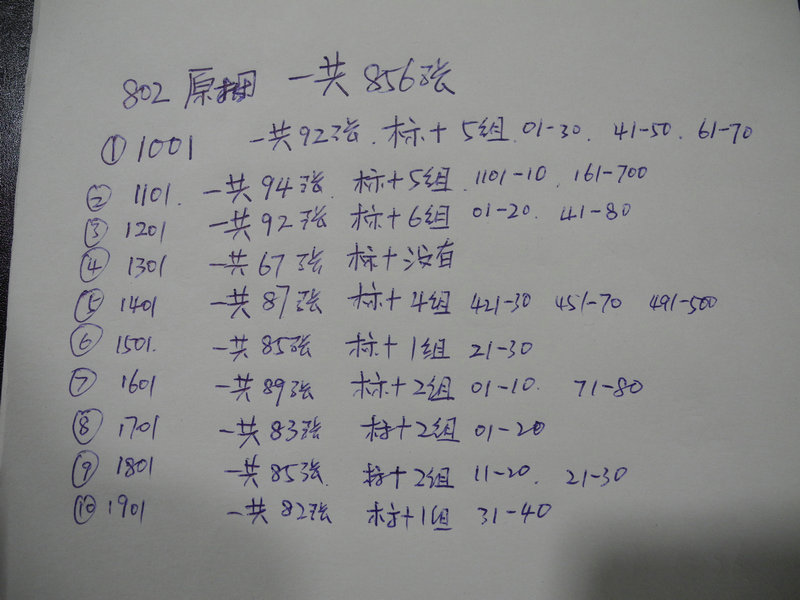 802 原捆 一共 856张
① 1001 一共92张. 标十 5组. 01-30. 41-50. 61-70
② 1101. 一共94张. 标十5组. 1101-10. 161-700
③ 1201 一共92张 标十6组 01-20. 41-80
④ 1301 一共67张 标十没有
⑤ 1401 一共87张 标十4组 421-30 451-70 491-500
⑥ 1501. 一共85张 标十1组 21-30
⑦ 1601 一共89张 标十2组 01-10. 71-80
⑧ 1701 一共83张 标十2组 01-20
⑨ 1801 一共85张. 标十2组 11-20. 21-30
⑩ 1901 一共82张 标十1组 31-40